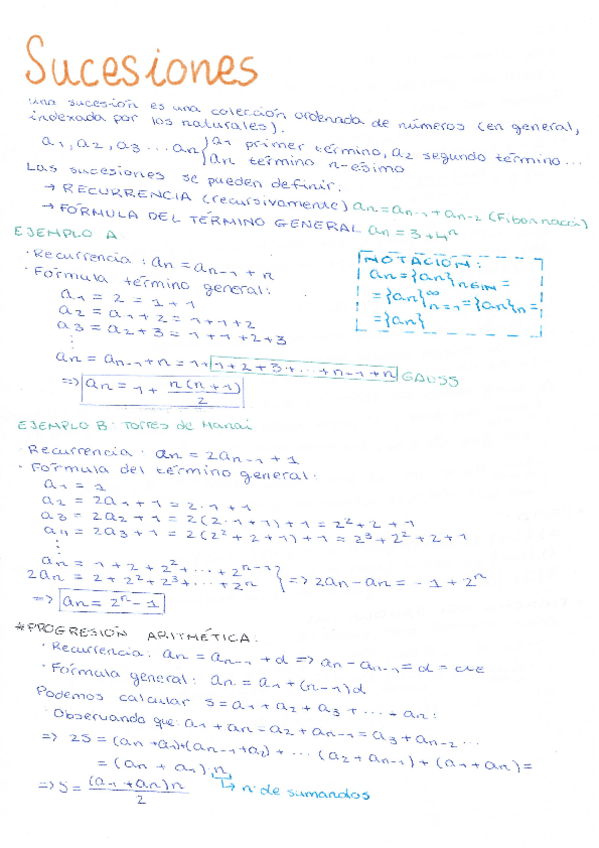 Sucesiones
una sucesión es una colección ordenada de números (en general,
indexada por los naturales).
a₁, a₂, a₃ ... aₙ } a₁ primer término, a₂ segundo término...
aₙ termino n-esimo
Las sucesiones se pueden definir:
→ RECURRENCIA (recursivamente) aₙ = aₙ₋₁ + aₙ₋₂ (Fibonnacci)
→ FÓRMULA DEL TÉRMINO GENERAL aₙ = 3 + 4ⁿ
EJEMPLO A
· Recurrencia : aₙ = aₙ₋₁ + n
· Fórmula término general:
a₁ = 2 = 1 + 1
a₂ = a₁ + 2 = 1 + 1 + 2
a₃ = a₂ + 3 = 1 + 1 + 2 + 3
⋮
aₙ = aₙ₋₁ + n = 1 + 1 + 2 + 3 + ... + n - 1 + n GAUSS
=> aₙ = 1 + n(n+1)/2
NOTACIÓN:
aₙ = {aₙ}ₙ∈ℕ =
= {aₙ}ₙ₌₁^∞ = {aₙ}ₙ =
= {aₙ}
EJEMPLO B: Torres de Hanai
· Recurrencia : aₙ = 2aₙ₋₁ + 1
· Fórmula del término general:
a₁ = 1
a₂ = 2a₁ + 1 = 2·1 + 1
a₃ = 2a₂ + 1 = 2(2·1 + 1) + 1 = 2² + 2 + 1
a₄ = 2a₃ + 1 = 2(2² + 2 + 1) + 1 = 2³ + 2² + 2 + 1
⋮
aₙ = 1 + 2 + 2² + ... + 2ⁿ⁻¹
2aₙ = 2 + 2² + 2³ + ... + 2ⁿ } => 2aₙ - aₙ = -1 + 2ⁿ
=> aₙ = 2ⁿ - 1
*PROGRESIÓN ARITMÉTICA:
· Recurrencia: aₙ = aₙ₋₁ + d => aₙ - aₙ₋₁ = d = cte
· Fórmula general: aₙ = a₁ + (n-1)d
Podemos calcular S = a₁ + a₂ + a₃ + ... + aₙ:
· Observando que: a₁ + aₙ = a₂ + aₙ₋₁ = a₃ + aₙ₋₂ ...
=> 2S = (aₙ + a₁) + (aₙ₋₁ + a₂) + ... (a₂ + aₙ₋₁) + (a₁ + aₙ) =
= (aₙ + a₁) n
↳ nº de sumandos
=> S = (a₁ + aₙ)n/2